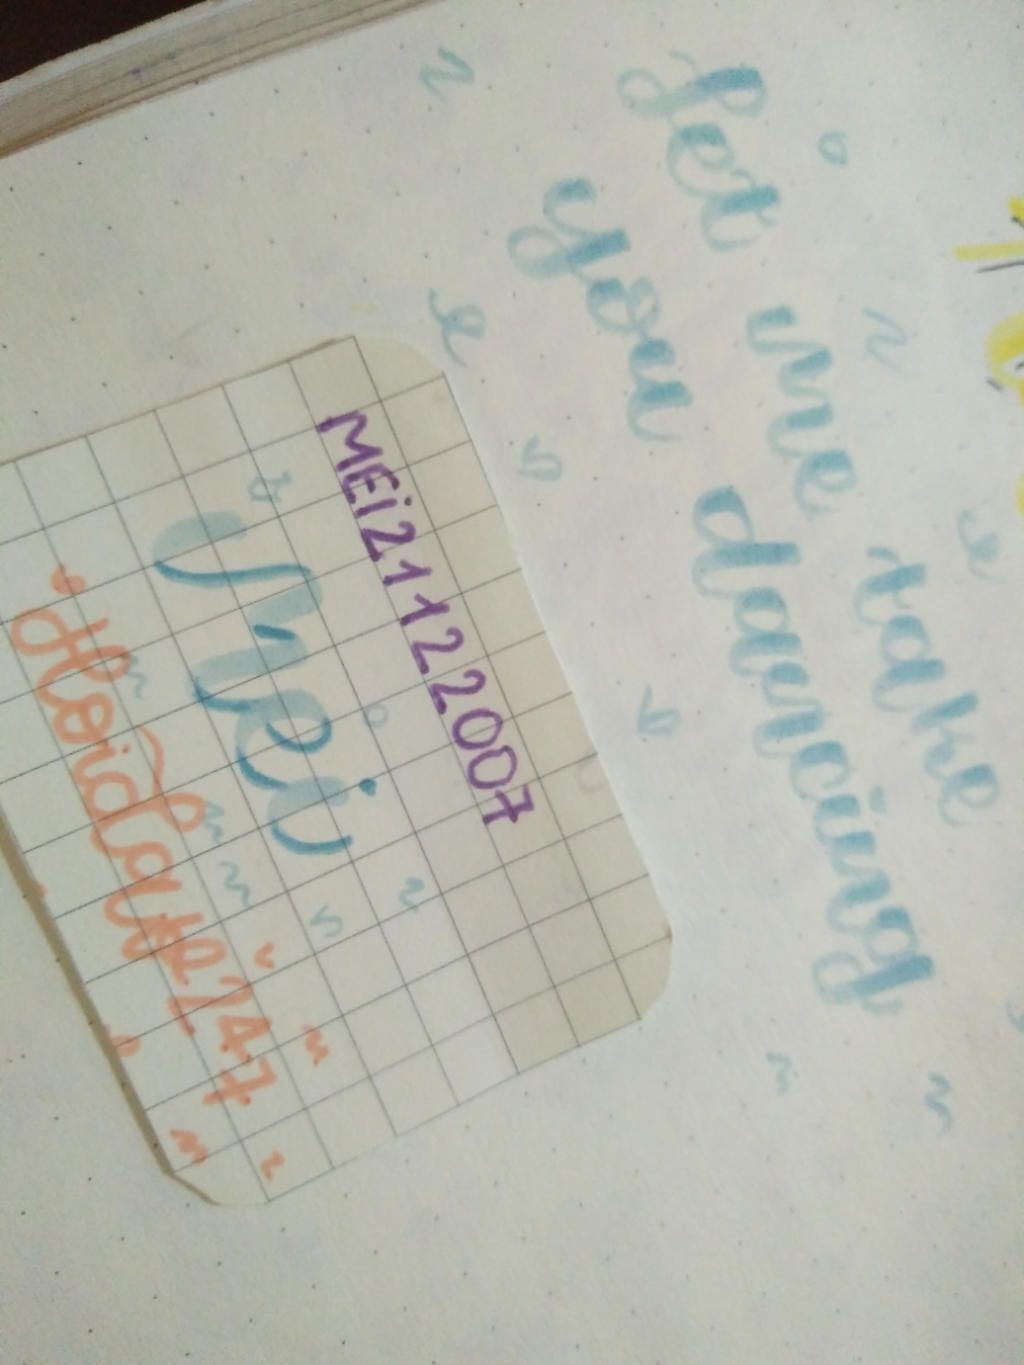 Let me take
you dancing
MEi21122007
Mei